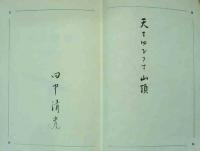 天をゆるす山頂
田中清光